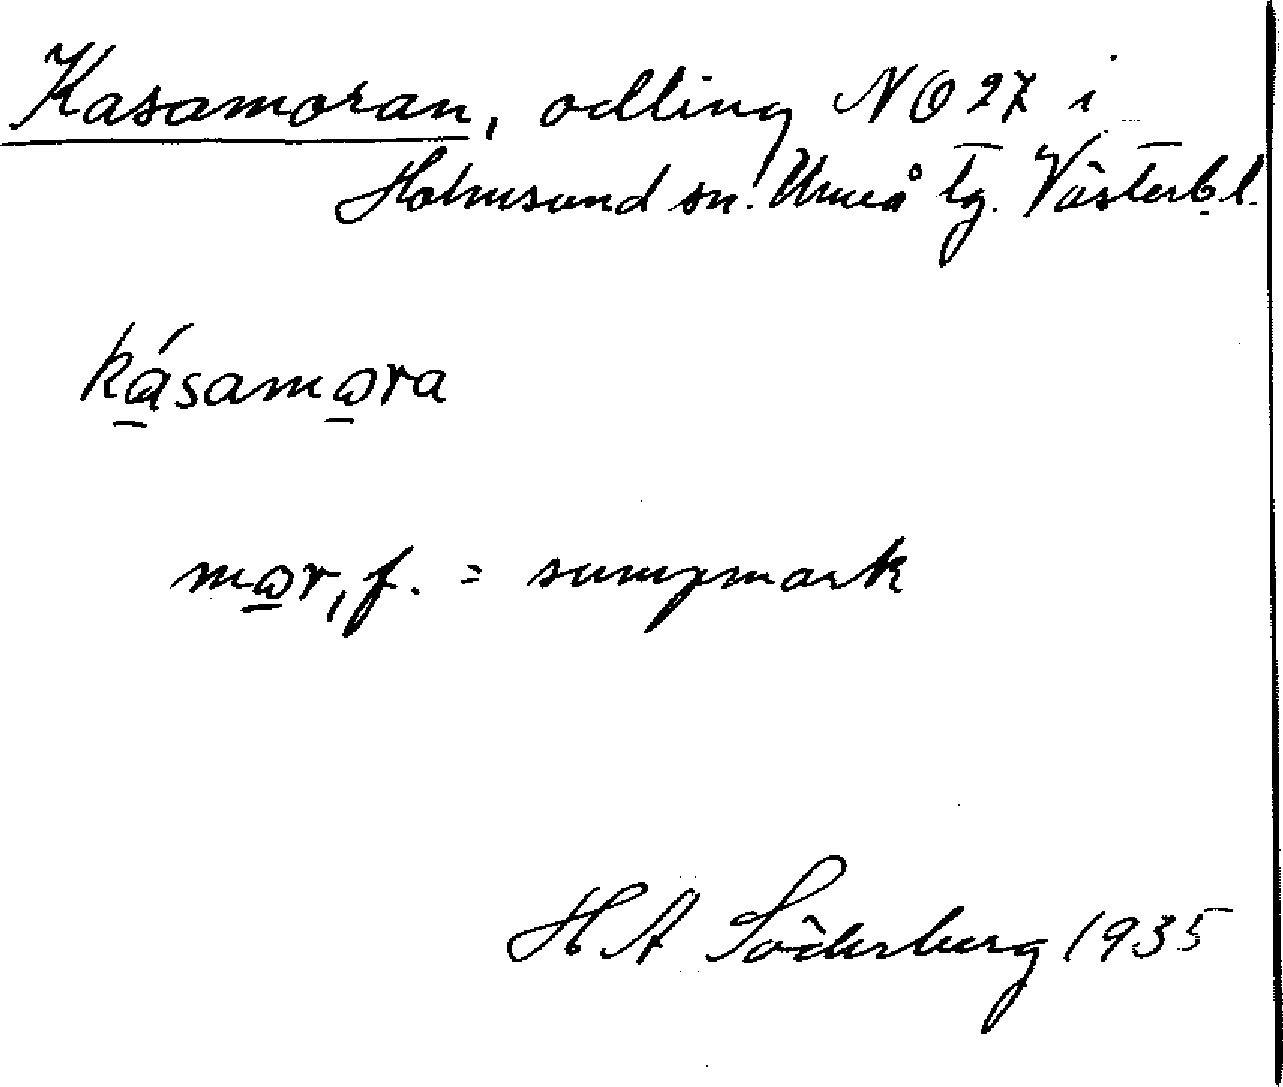 Kasamoran, odling NO 27 i
Holmsund sn. Umeå tg. Västerb. l.
kásamɷra
mɷr, f. = sumpmark
H A Söderberg 1935